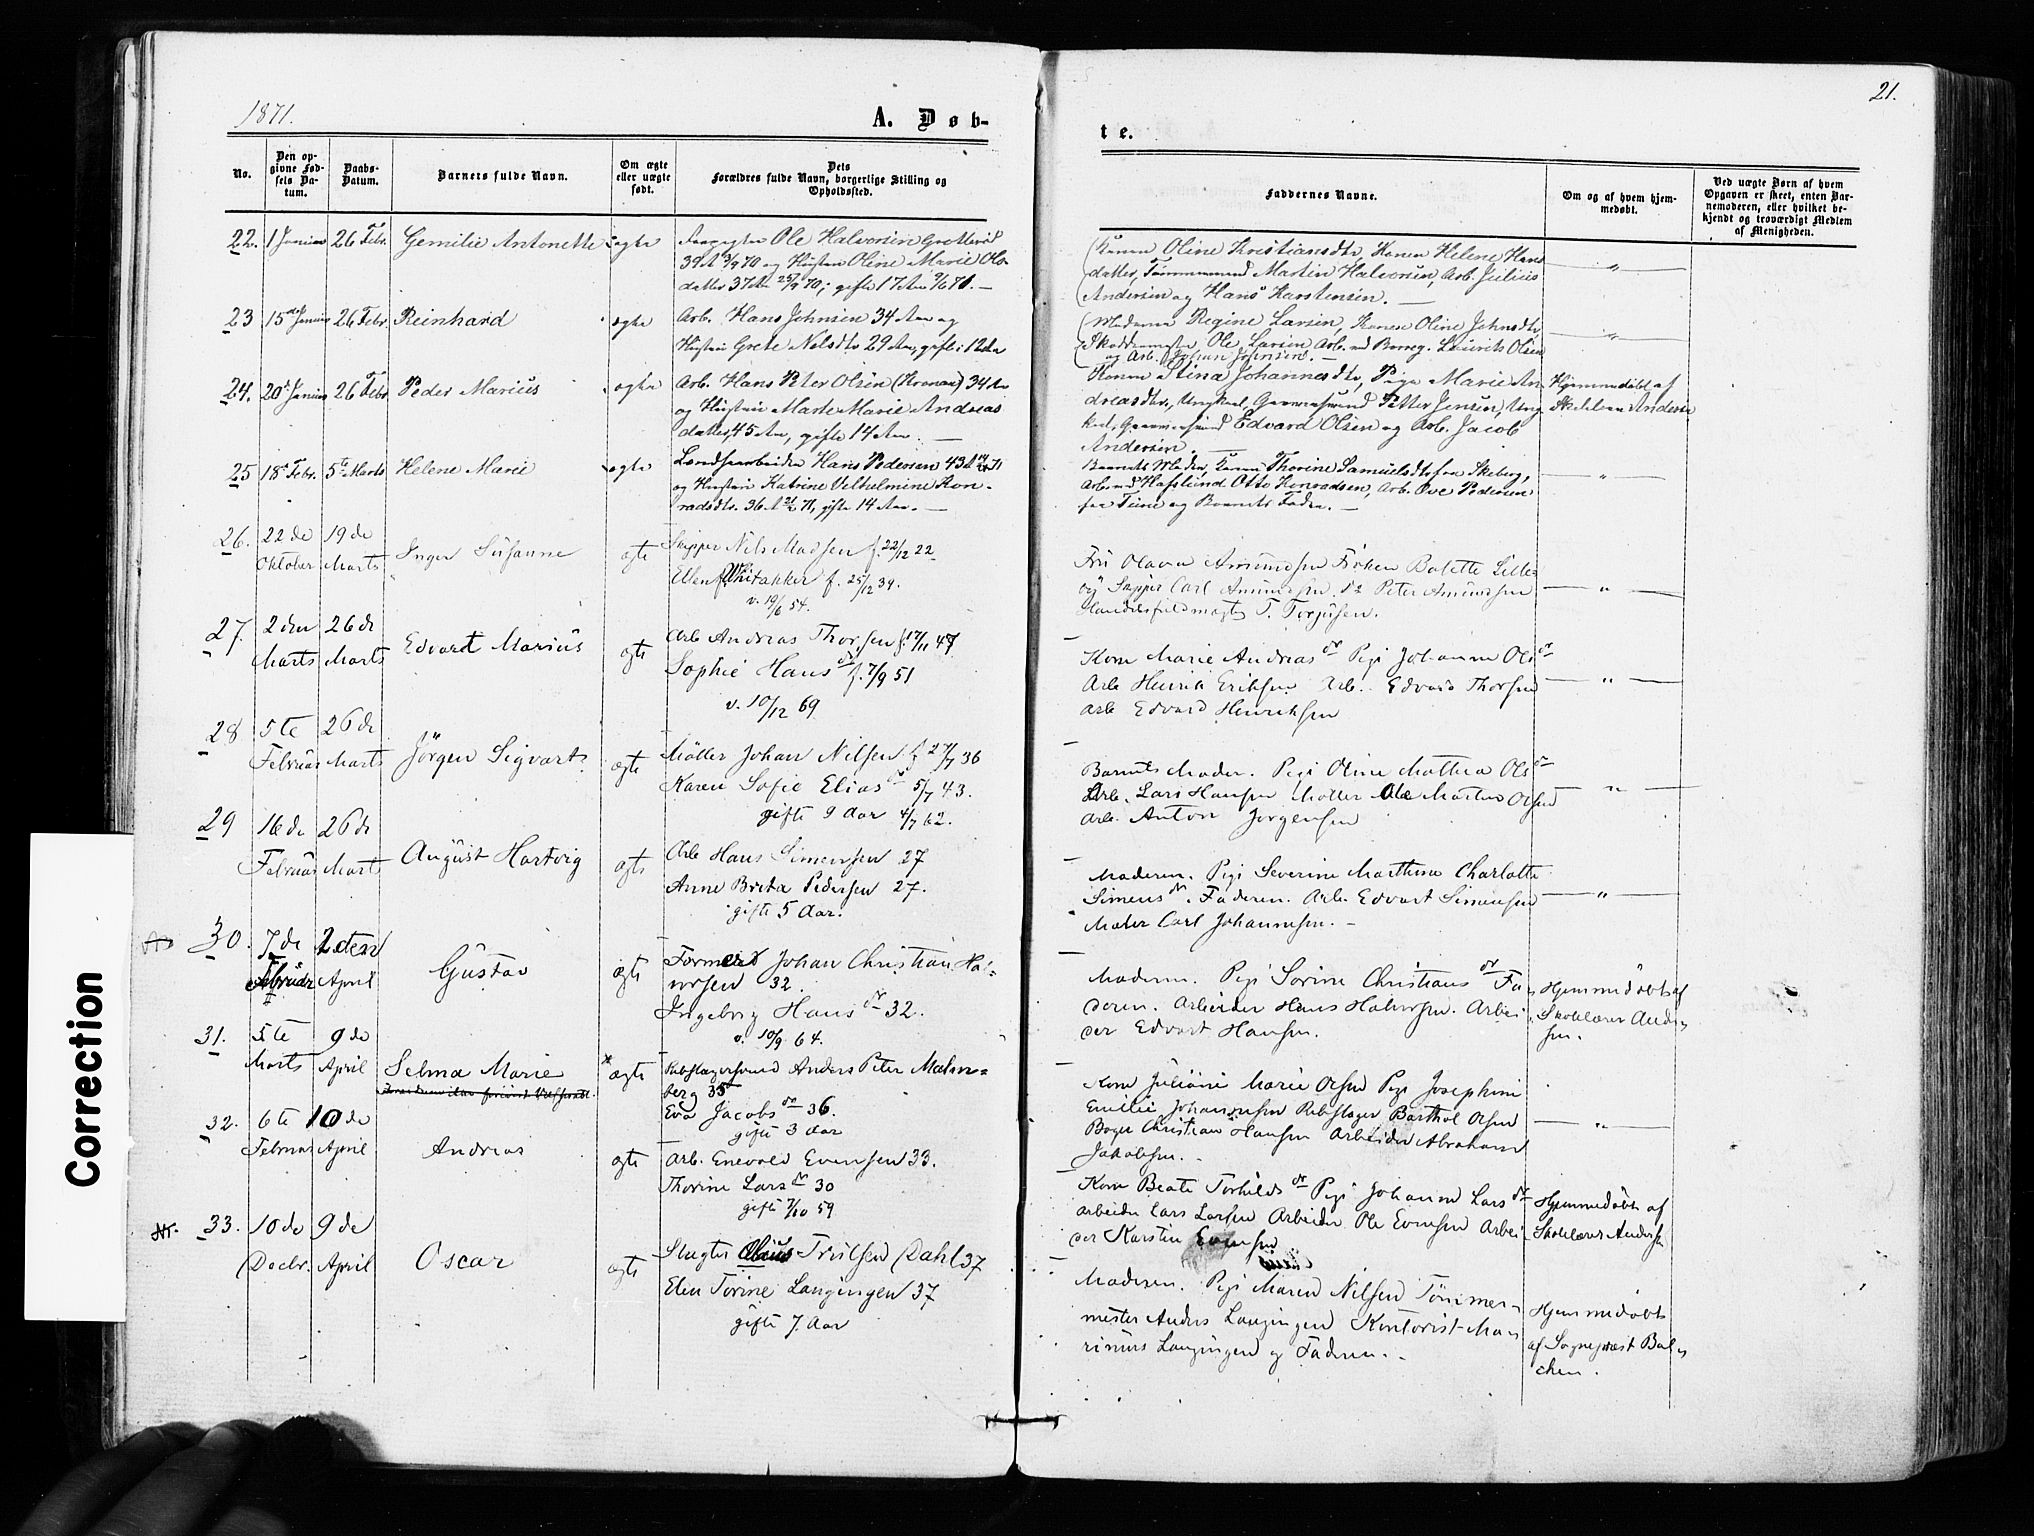 1871.
A. Døb-
te.
21.
No.
Den op-
givne Fød-
sels Da-
tum.
Daabs-
Datum.
Barnets fulde Navn.
Om ægte
eller uægte
født.
Dets
Forældres fulde Navn, borgerlige Stilling og
Opholdssted.
Faddernes Navne.
Om og af hvem hjem-
medøbt.
Ved uægte Børn af hvem
Opgaven er skeet, enten Bar-
nemoderen, eller hvilket be-
kjendt og troværdigt Medlem
af Menigheden.
22. 1 Januar 26 Febr. Gemilie Antonette ægte
Ole Halvorsen Grotterød
39 A 3/9 70 og Hustru Oline Marie Ols-
datter 37 Aar 25/9 70; gifte 17 Aar
Konen Oline Kristiansdtr, Konen Helene Hans
datter, Martin Halvorsen, Arb. Julius
Andersen og Hans Karstensen. —
23 15de Januar 26 Febr. Reinhard ægte
Arb. Hans Johnsen 34 Aar og
Hustru Grete Nilsdtr 29 Aar, gifte i 12 Aar
Madame Regine Larsen, Konen Oline Johnsdtr,
Ole Larsen Arb. ved Borreg. Laurits Olsen
og Arb. Johan Johnsen. —
24. 20de Januar 26 Febr Peder Marius ægte
Arb. Hans Peter Olsen (Kronan) 34 Aar
og Hustru Marte Marie Andreas
datter, 45 Aar, gifte 14 Aar. —
Konen Stina Johannesdtr, Pige Marie An-
dreasdtr., Ungkarl, Petter Jensen, Ung
karl, Edvard Olsen og Arb. Jacob
Andersen. —
Hjemmedøbt af
Skolelærer Andersen
25 18de Febr. 5te Marts Helene Marie ægte
Hans Pedersen 43 A
og Hustru Katrine Vilhelmine Kon-
radsdtr. 36 A 71, gifte 14 Aar. —
Barnets Moder, Konen Thorine Samuelsdtr fra Skeberg,
Arb. ved Hafslund Otto Konradsen, Arb. Ove Pedersen
fra Tune og Barnets Fader. —
26. 22de Oktober 19de Marts Inger Susanne ægte
Skipper Nils Madsen f. 22/12 22
Ellen Whitakker f. 25/12 34.
v. 19/6 54.
Fru Olava Amundsen Frøken Bolette Lille
og Skipper Carl Amundsen. do Peter Amundsen
Handelsfuldmægtig T. Torjusen.
27. 2den Marts 26de Marts Edvart Marius ægte
Arb Andreas Thorsen f. 17/11 47
Sophie Hans dr f. 7/9 51
v. 10/12 69.
Kone Marie Andreas dr Pige Johanne Ols dr
Arb Henrik Eriksen. Arb. Edvard Thorsen
Arb Edvard Henriksen
28 5te Februar 26de Marts Jörgen Sigvart ægte
Møller Johan Nilsen f 27/7 36
Karen Sofie Elias dr 5/7 43.
gifte 9 Aar 4/7 62.
Barnets Moder. Pige Oline Mathea Ols dr
Arb. Lars Hansen Møller Ole Martin Olsen
Arb. Anton Jorgensen
29 16de Februar 26de Mart August Hartvig ægte
Arb Hans Simensen 27
Anne Brita Pedersen 27.
gifte 5 Aar.
Moderen. Pige Severine Marthine Charlotte
Simens dr. Faderen. Arb. Edvart Simensen
Maler Carl Johannesen. –
30. 7de Februar 2den April Gustav ægte
Formand Johan Christian Hal-
vorsen 32.
Ingeborg Hans dr 32.
v. 10/9 64.
Moderen. Pige Sorine Christians dr Fa-
deren. Arbeider Hans Halvorsen. Arbei-
der Edvart Hansen.
Hjemmedøbt af
Skolelærer Ander-
sen.
31. 5te Marts 9de April Selma Marie ægte
Rebslagersvend Anders Peter Malm-
berg 35
Eva Jacobs dr 36.
gifte 3 Aar
Kone Juliane Marie Olsen Pige Josephine
Emilie Johannesen Rebslager Barthol Olsen
Bager Christian Hansen Arbeider Abraham
Jakobsen.
32. 6te Februar 10de April Andreas ægte
Arb. Enevold Evensen 33.
Thorine Lars dr 30
gifte 7/10 59
Kone Beate Torkilds dr Pige Johanne Lars dr
Arbeider Lars Larsen Arbeider Ole Evensen Arbei-
der Karstin Evensen
Hjemmedøbt af
Skolelærer Andersen
33. 10de Decbr. 9de April Oscar ægte
Slagter Trulsen (Dahl 37
Elen Torine Langingen 37
gifte 7. Aar
Moderen. Pige Maren Nilsen Tömmer-
mester Anders Langingen Kontorist Ma-
rinius Langingen og Faderen. –
Hjemmedøbt
af Sogneprest Bal-
chen.
Correction